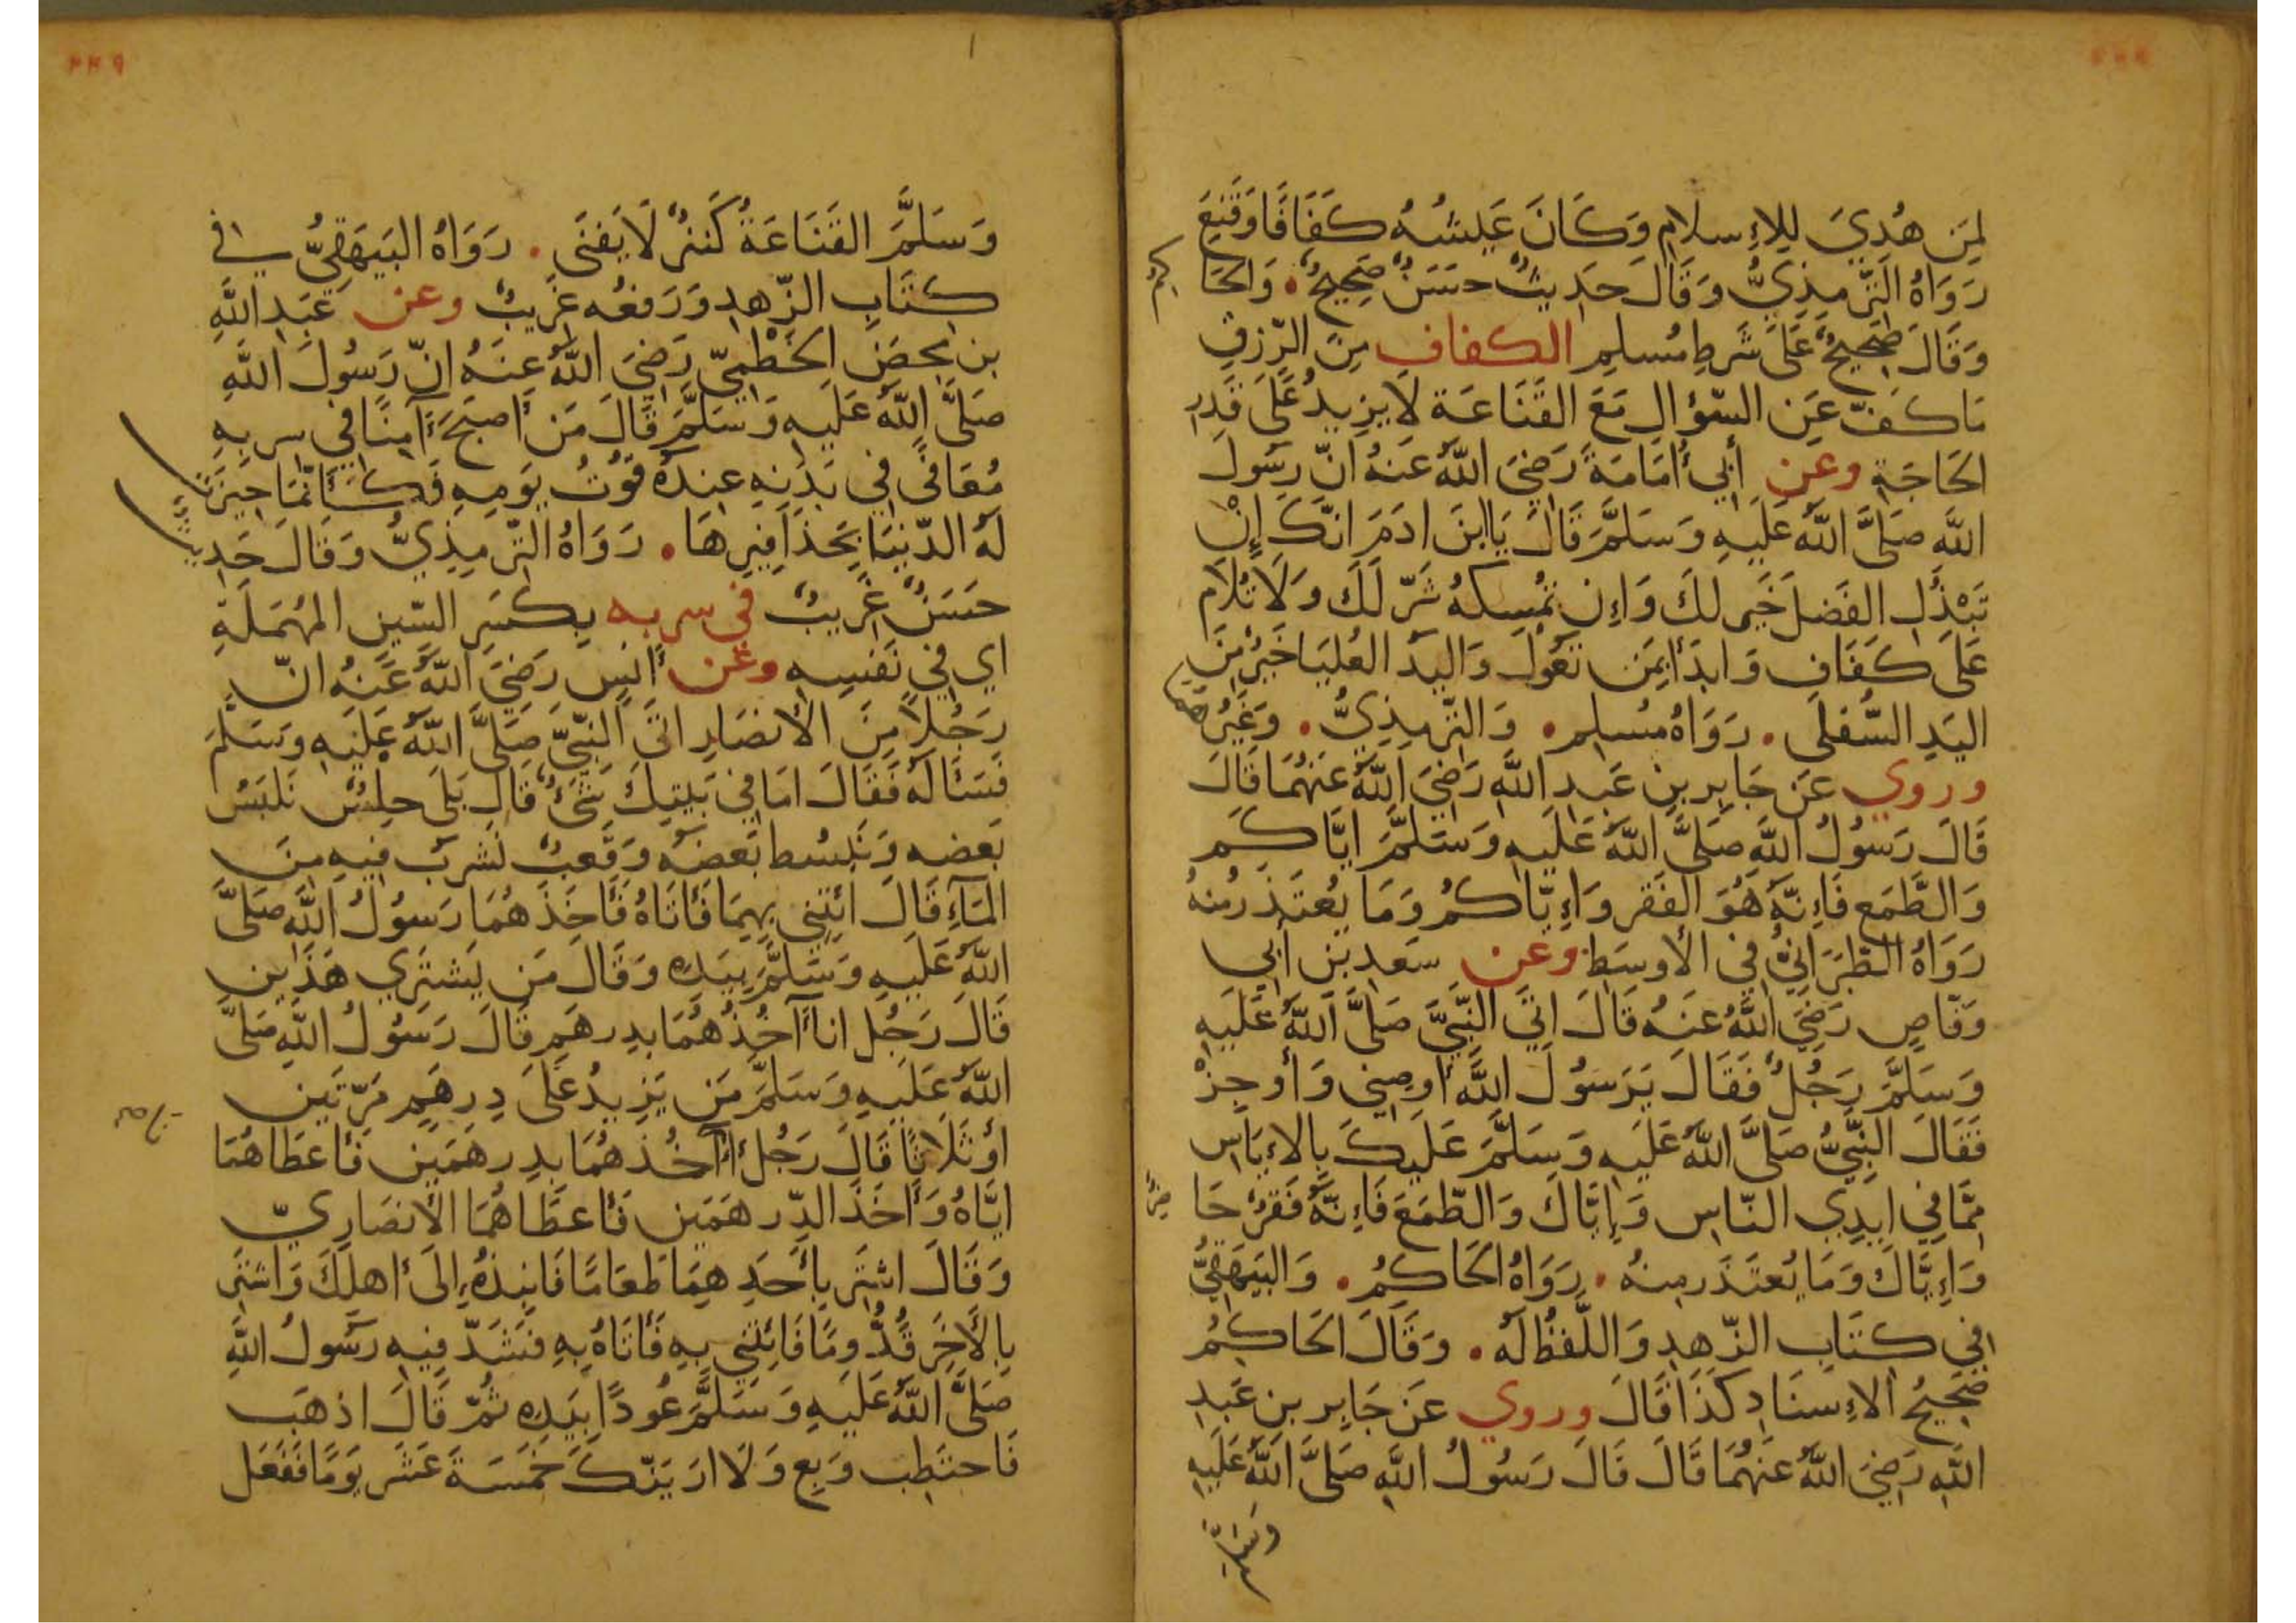 لِمَن هُدِيَ لِلإِسلَامِ وَكَانَ عَيشُهُ كَفَافًا وَقَنِعَ
رَوَاهُ التِّرمِذِيُّ وَقَالَ حَدِيثٌ حَسَنٌ صَحِيحٌ . وَالحَاكِمُ
وَقَالَ صَحِيحٌ عَلَى شَرطِ مُسلِمٍ الكفاف مِنَ الرِّزقِ
مَا كَفَّ عَنِ السّؤَالِ مَعَ القَنَاعَة لَا يَزِيدُ عَلَى قَدر
الحَاجَةِ وعن أَبِي أُمَامَةَ رَضِيَ اللَّهُ عَنهُ انّ رَسُولَ
اللَّهِ صَلَّى اللَّهُ عَلَيهِ وَسَلَّمَ قَالَ يَا ابنَ ادَمَ انّكَ إِنْ
تَبْذُلِ الفَضلَ خَير لَكَ وَإِن تُمْسِكهُ شَرّ لَكَ وَلَا تُلَام
عَلَى كَفَافٍ وَابدَأ بِمَن تَعُولُ وَاليَدُ العُليَا خَيرٌ مِنَ
اليَدِ السُّفلَى . رَوَاهُ مُسلِم . وَالتِّرمِذِيُّ . وَغَيرُهمَا
وروي عَن جَابِر بنِ عَبدِ اللَّهِ رَضِيَ اللَّهُ عَنهُمَا قَالَ
قَالَ رَسُولُ اللَّهِ صَلَّى اللَّهُ عَلَيهِ وَسَلَّمَ ايَّاكُم
وَالطَّمَع فَإِنَّهُ هُوَ الفَقر وَإِيّاكُم وَمَا يُعتَذَر مِنهُ
رَوَاهُ الطّبَرَانِيُّ فِي الأوسَطِ وعن سَعدِ بنِ أَبِي
وَقّاصٍ رَضِيَ اللَّهُ عَنهُ قَالَ اتَى النَّبِيَّ صَلَّى اللَّهُ عَلَيهِ
وَسَلَّمَ رَجُلٌ فَقَالَ يَرَسُولَ اللَّهِ أَوصِنِي وَأَوجِزْ
فَقَالَ النَّبِيُّ صَلَّى اللَّهُ عَلَيهِ وَسَلَّمَ عَلَيكَ بِالإِيَاسِ
مِمَّا فِي ايدِي النّاسِ وَإِيَّاكَ وَالطّمَعَ فَإِنّهُ فَقرٌ حَاضِرٌ
وَإِيَّاكَ وَمَا يُعتَذَر مِنهُ . رَوَاهُ الحَاكِمُ . وَالبَيهَقِيُّ
فِي كِتَابِ الزّهدِ وَاللَّفظُ لَهُ . وَقَالَ الحَاكِمُ
صَحِيحُ الإِسنَادِ كَذَا قَالَ وروي عَن جَابِر بن عَبدِ
اللَّهِ رَضِيَ اللَّهُ عَنهُمَا قَالَ قَالَ رَسُولُ اللَّهِ صَلَّى اللَّهُ عَلَيهِ
وَسَلَّمَ
٤٤٩
وَسَلَّمَ القَنَاعَةُ كَنزٌ لَا يَفنَى . رَوَاهُ البَيهَقِيُّ فِي
كِتَابِ الزّهدِ وَرَفعُه غَرِيبٌ وعن عَبدِ اللَّهِ
بن مِحصَن الخَطْمِيّ رَضِيَ اللَّهُ عَنهُ انّ رَسُولَ اللَّهِ
صَلَّى اللَّهُ عَلَيهِ وَسَلَّمَ قَالَ مَن أَصبَحَ آمِنًا فِي سربِهِ
مُعَافًى فِي بَدَنِهِ عِندَهُ قُوتُ يَومِهِ فَكَأَنَّمَا حِيزَت
لَهُ الدّنيَا بِحَذَافِيرِهَا . رَوَاهُ التّرمِذِيُّ وَقَالَ حَدِيثٌ
حَسَنٌ غَرِيبٌ في سربه بِكَسرِ السّينِ المُهمَلَةِ
اي فِي نَفسِهِ وعن أَنَسٍ رَضِيَ اللَّهُ عَنهُ انّ
رَجُلًا مِنَ الأَنصَارِ اتَى النَّبِيَّ صَلَّى اللَّهُ عَلَيهِ وَسَلَّمَ
فَسَأَلَهُ فَقَالَ امَا فِي بَيتِكَ شَيءٌ قَالَ بَلَى حِلسٌ نَلبَسُ
بَعضه وَنَبسُط بَعضَهُ وَقَعبٌ نَشرَبُ فِيهِ مِنَ
المَآءِ قَالَ ائتِنِي بِهِمَا فَأَتَاهُ فَأَخَذَهُمَا رَسُولُ اللَّهِ صَلَّى
اللَّهُ عَلَيهِ وَسَلَّمَ بِيَدِهِ وَقَالَ مَن يَشتَرِي هَذَينِ
قَالَ رَجُل انا آخُذُهُمَا بِدِرهَمٍ قَالَ رَسُولُ اللَّهِ صَلَّى
اللَّهُ عَلَيهِ وَسَلَّمَ مَن يَزِيدُ عَلَى دِرهَمٍ مَرّتَينِ
أَو ثَلَاثًا قَالَ رَجُل أَنَا آخُذهُمَا بِدِرهَمَينِ فَأَعطَاهُمَا
ايَّاهُ وَأَخَذَ الدِّرهَمَينِ فَأَعطَاهُمَا الأَنصَارِيّ
وَقَالَ اشتَرِ بِأَحَدِهِمَا طَعَامًا فَانبِذهُ إِلَى أَهلِكَ وَاشتَرِ
بِالآخَرِ قُدُّومًا فَائتِنِي بِهِ فَأَتَاهُ بِهِ فَشَدّ فِيهِ رَسُولُ اللَّهِ
صَلَّى اللَّهُ عَلَيهِ وَسَلَّمَ عُودًا بِيَدِهِ ثُمّ قَالَ اذهَب
فَاحتَطِب وَبِع وَلَا ارَيَنّكَ خَمسَةَ عَشَر يَومًا فَفَعَل